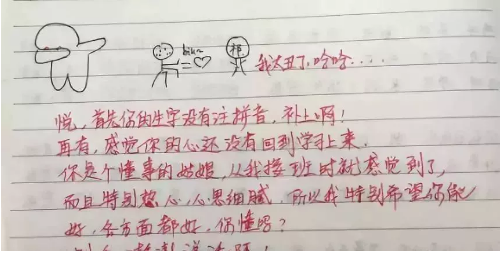 biu~
祁
我太丑了，哈哈....
悦，首先你的生字没有注拼音，补上啊！
再有，感觉你的心还没有回到学习上来，
你是个懂事的姑娘，从我接班时就感觉到了，
而且特别慧心，心思细腻，所以我特别希望你能
好，各方面都好，你懂吗？